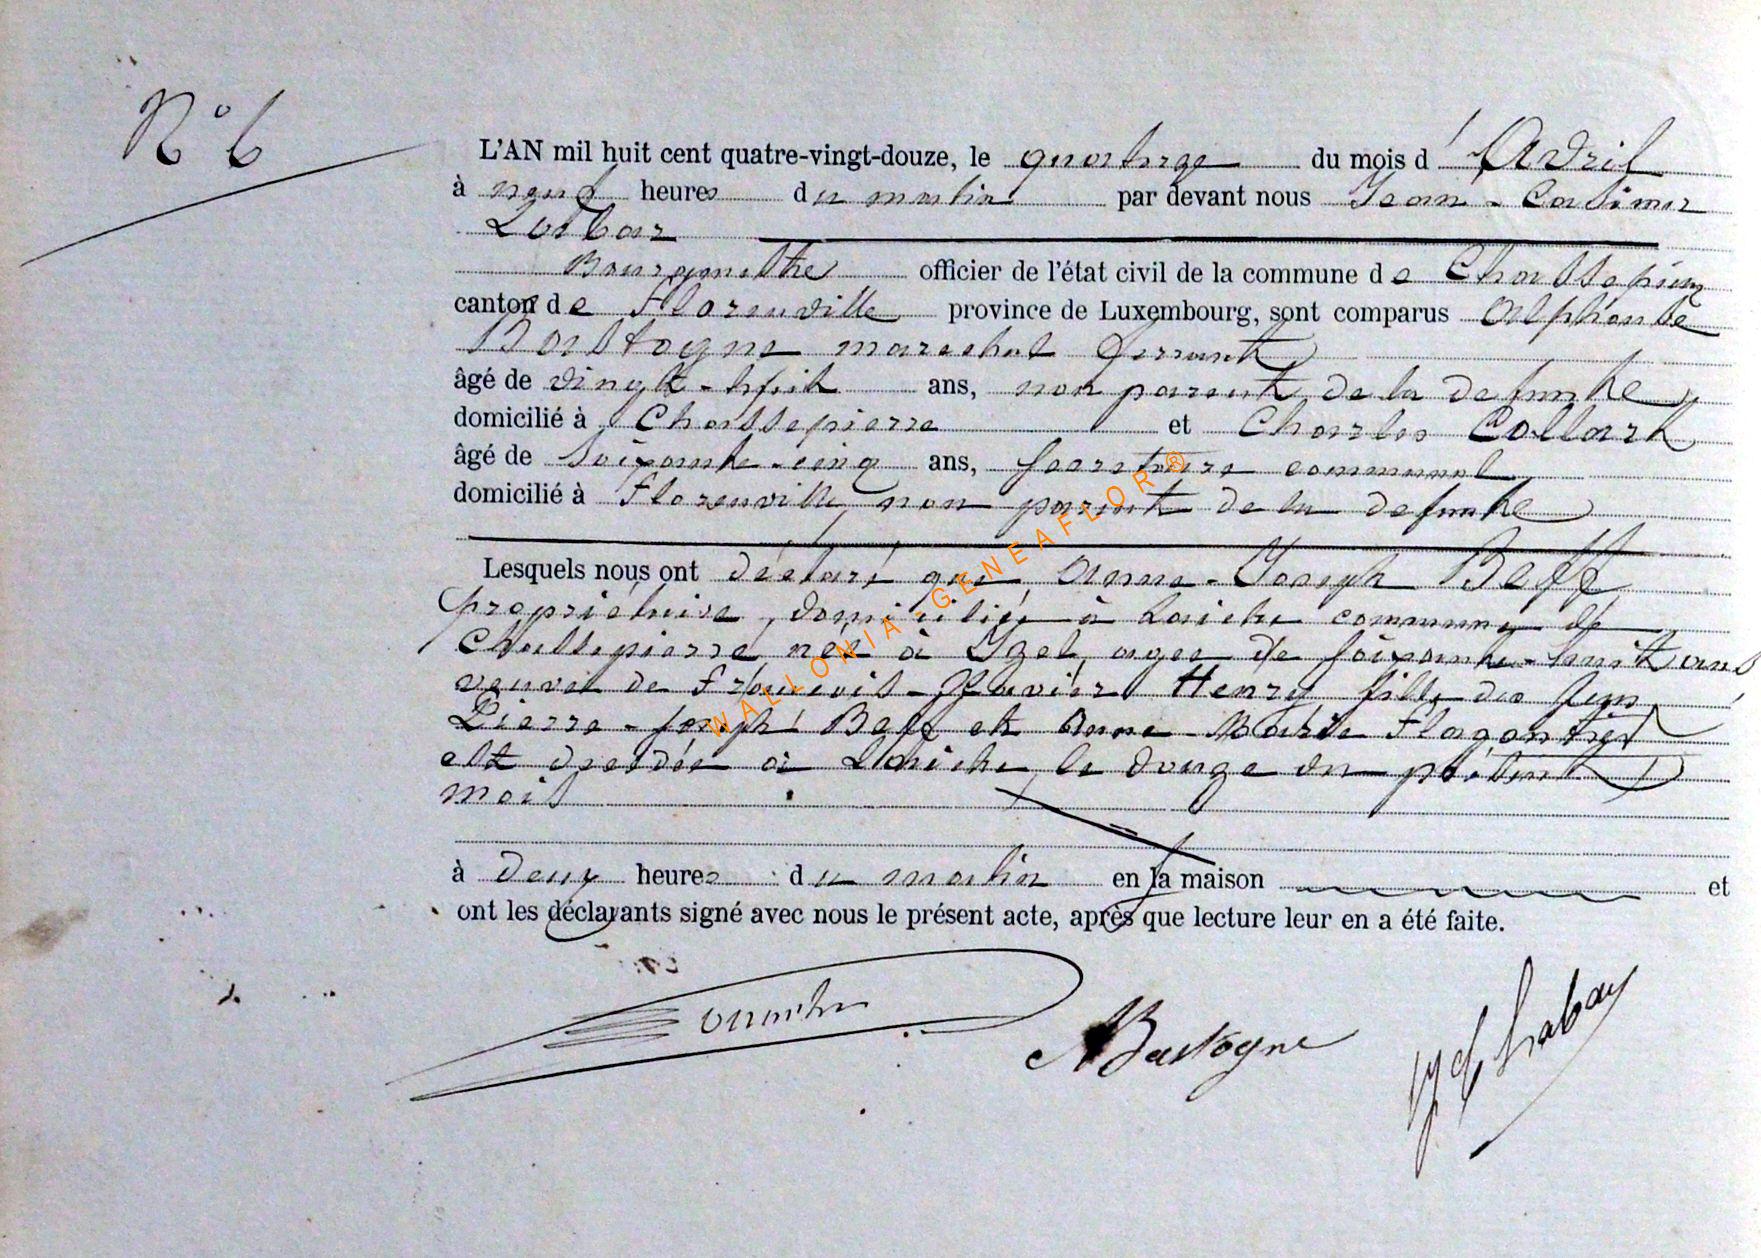 N° 6
L'AN mil huit cent quatre-vingt-douze, le quatorze du mois d'Avril
à neuf heures du matin par devant nous Jean-Casimir
Labar
Bourgmestre officier de l'état civil de la commune de Chassepierre
canton de Florenville province de Luxembourg, sont comparus Alphonse
Bastogne marechal ferrant
âgé de vingt-huit ans, non parent de la defunte
domicilié à Chassepierre et Charles Collart
âgé de soixante-cinq ans, secretaire communal
domicilié à Florenville, non parent de la defunte
Lesquels nous ont déclaré que Anne-Joseph Beff
propriétaire, domiciliée à Laiche commune de
Chassepierre, née à Izel, agée de soixante-huit ans
veuve de François-Xavier Henry fille des feux
Pierre-Joseph Beff et Anne-Marie Flagontier
est décédée à Laiche, le douze du présent
mois
à deux heures du matin en sa maison et
ont les déclarants signé avec nous le présent acte, après que lecture leur en a été faite.
ABastogne
JC Labar
WALLONIA - GENEAFLOR ®